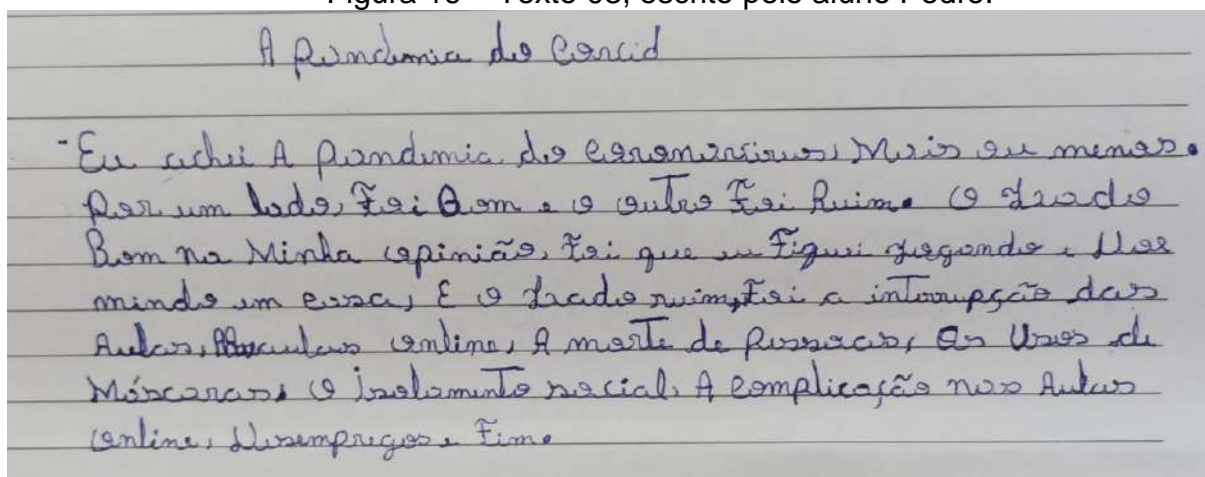 A Pandemia do Corcid
- Eu achei A Pandemia do coronavírus, Mais ou menos.
Por um lado, Foi Bom e o outro Foi Ruim. O Lado
Bom na Minha opinião, Foi que eu Figuei jogando e Dor
mindo em casa, E o Lado ruim, Foi a interrupção das
Aulas, aulas online, A morte de Pessoas, Os Usos de
Máscaras, O Isolamento social, A complicação nas Aulas
online, Desempregos e Fim.